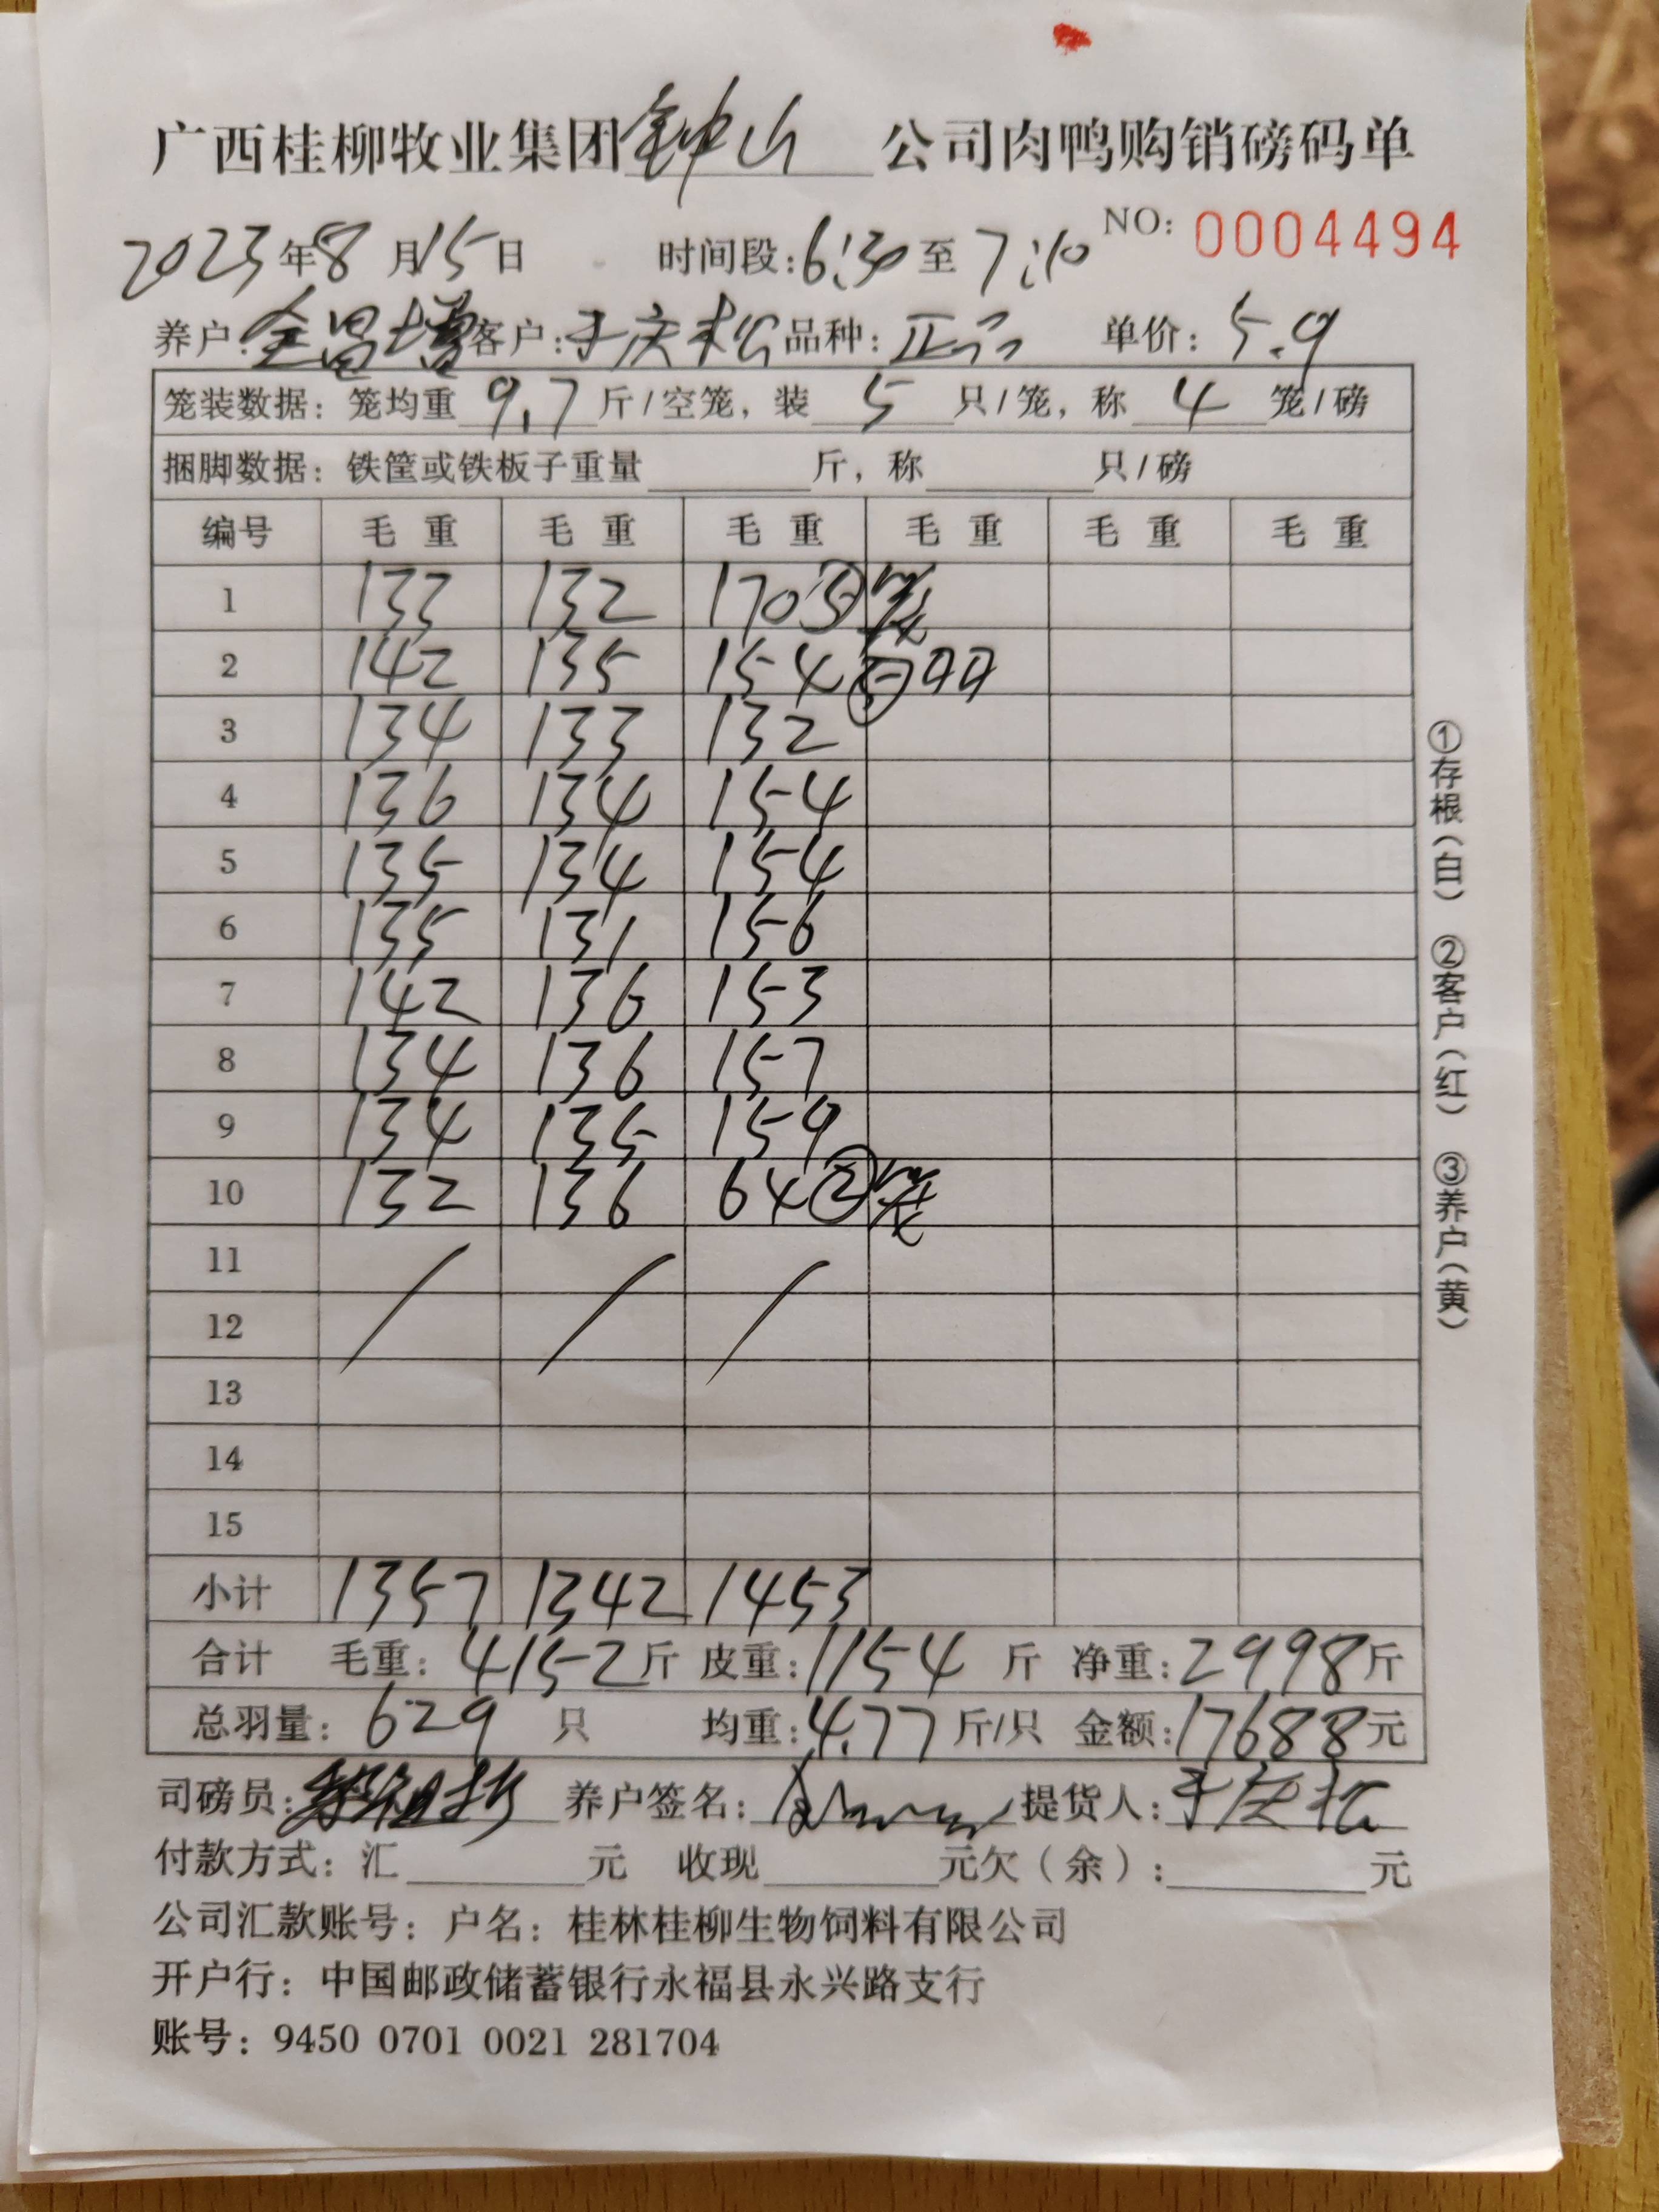 广西桂柳牧业集团钟山公司肉鸭购销磅码单
2023年8月15日 时间段:6:30至7:10 NO: 0004494
养户:全昌增 客户:于庆松 品种:正品 单价:5.9
笼装数据:笼均重9.7斤/空笼,装5只/笼,称4笼/磅
捆脚数据:铁筐或铁板子重量 斤,称 只/磅
编号 毛重 毛重 毛重 毛重 毛重 毛重
1 133 132 170⑤笼
2 142 135 154
3 134 133 132
4 136 134 154
5 135 134 154
6 135 131 156
7 142 136 153
8 134 136 157
9 134 135 159
10 132 136 64②笼
11
12
13
14
15
小计 1357 1342 1453
合计 毛重:4152斤 皮重:1154斤 净重:2998斤
总羽量:629只 均重:4.77斤/只 金额:17688元
司磅员: 养户签名: 提货人:于庆松
付款方式:汇 元 收现 元欠(余): 元
公司汇款账号:户名:桂林桂柳生物饲料有限公司
开户行:中国邮政储蓄银行永福县永兴路支行
账号:9450 0701 0021 281704
①存根(白) ②客户(红) ③养户(黄)